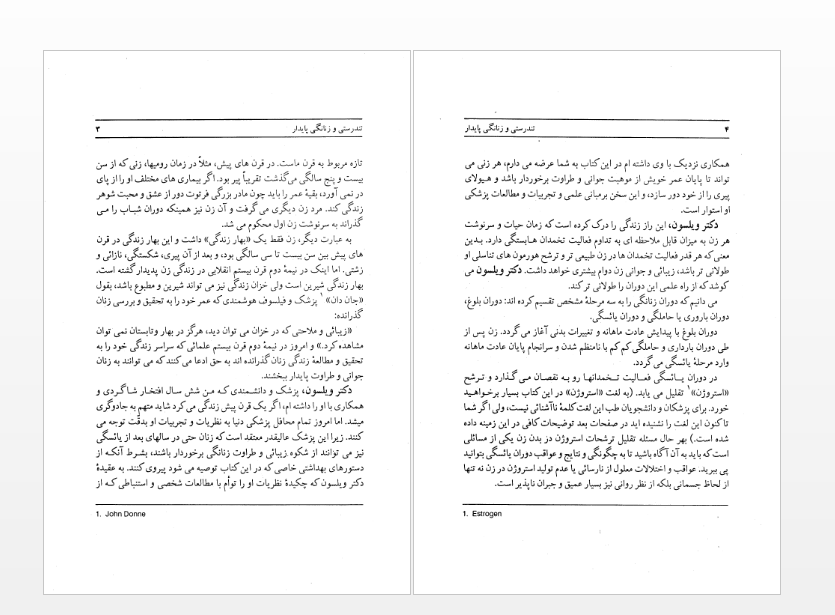 تندرستی و زنانگی پایدار
۳
تازه مربوط به قرن ماست. در قرن های پیش، مثلاً در زمان رومیها، زنی که از سن
بیست و پنج سالگی می‌گذشت تقریباً پیر بود. اگر بیماری های مختلف او را از پای
در نمی آورد، بقیهٔ عمر را باید چون مادر بزرگی فرتوت دور از عشق و محبت شوهر
زندگی کند. مرد زن دیگری می گرفت و آن زن نیز همینکه دوران شباب را می
گذراند به سرنوشت زن اول محکوم می شد.
به عبارت دیگر، زن فقط یک «بهار زندگی» داشت و این بهار زندگی در قرن
های پیش بین سن بیست تا سی سالگی بود، و بعد از آن پیری، شکستگی، نازائی و
زشتی. اما اینک در نیمهٔ دوم قرن بیستم انقلابی در زندگی زن پدیدار گشته است.
بهار زندگی شیرین است ولی خزان زندگی نیز می تواند شیرین و مطبوع باشد، بقول
«جان دان» ۱ پزشک و فیلسوف هوشمندی که عمر خود را به تحقیق و بررسی زنان
گذرانده:
«زیبائی و ملاحتی که در خزان می توان دید، هرگز در بهار وتابستان نمی توان
مشاهده کرد.» و امروز در نیمهٔ دوم قرن بیستم علمائی که سراسر زندگی خود را به
تحقیق و مطالعهٔ زندگی زنان گذرانده اند به حق ادعا می کنند که می توانند به زنان
جوانی و طراوت پایدار ببخشند.
دکتر ویلسون، پزشک و دانشمندی که من شش سال افتخار شاگردی و
همکاری با او را داشته ام، اگر یک قرن پیش زندگی می کرد شاید متهم به جادوگری
میشد. اما امروز تمام محافل پزشکی دنیا به نظریات و تجربیات او بدقّت توجه می
کنند. زیرا این پزشک عالیقدر معتقد است که زنان حتی در سالهای بعد از یائسگی
نیز می توانند از شکوه زیبائی و طراوت زنانگی برخوردار باشند، بشرط آنکه از
دستورهای بهداشتی خاصی که در این کتاب توصیه می شود پیروی کنند. به عقیدهٔ
دکتر ویلسون که چکیدهٔ نظریات او را توأم با مطالعات شخصی و استنباطی که از
1. John Donne
۴
تندرستی و زنانگی پایدار
همکاری نزدیک با وی داشته ام در این کتاب به شما عرضه می دارم، هر زنی می
تواند تا پایان عمر خویش از موهبت جوانی و طراوت برخوردار باشد و هیولای
پیری را از خود دور سازد، و این سخن برمبانی علمی و تجربیات و مطالعات پزشکی
او استوار است.
دکتر ویلسون، این راز زندگی را درک کرده است که زمان حیات و سرنوشت
هر زن به میزان قابل ملاحظه ای به تداوم فعالیت تخمدان هابستگی دارد. بدین
معنی که هر قدر فعالیت تخمدان ها در زن طبیعی تر و ترشح هورمون های تناسلی او
طولانی تر باشد، زیبائی و جوانی زن دوام بیشتری خواهد داشت. دکتر ویلسون می
کوشد که از راه علمی این دوران را طولانی تر کند.
می دانیم که دوران زنانگی را به سه مرحلهٔ مشخص تقسیم کرده اند: دوران بلوغ،
دوران باروری یا حاملگی و دوران یائسگی.
دوران بلوغ با پیدایش عادت ماهانه و تغییرات بدنی آغاز می گردد. زن پس از
طی دوران بارداری و حاملگی کم کم با نامنظم شدن و سرانجام پایان عادت ماهانه
وارد مرحلهٔ یائسگی می گردد.
در دوران یائسگی فعالیت تخمدانها رو به نقصان می گذارد و ترشح
«استروژن»۱ تقلیل می یابد. (به لغت «استروژن» در این کتاب بسیار برخواهید
خورد. برای پزشکان و دانشجویان طب این لغت کلمهٔ ناآشنائی نیست، ولی اگر شما
تاکنون این لغت را نشنیده اید در صفحات بعد توضیحات کافی در این زمینه داده
شده است.) بهر حال مسئله تقلیل ترشحات استروژن در بدن زن یکی از مسائلی
است که باید به آن آگاه باشید تا به چگونگی و نتایج و عواقب دوران یائسگی بتوانید
پی ببرید. عواقب و اختلالات معلول از نارسائی یا عدم تولید استروژن در زن نه تنها
از لحاظ جسمانی بلکه از نظر روانی نیز بسیار عمیق و جبران ناپذیر است.
1. Estrogen